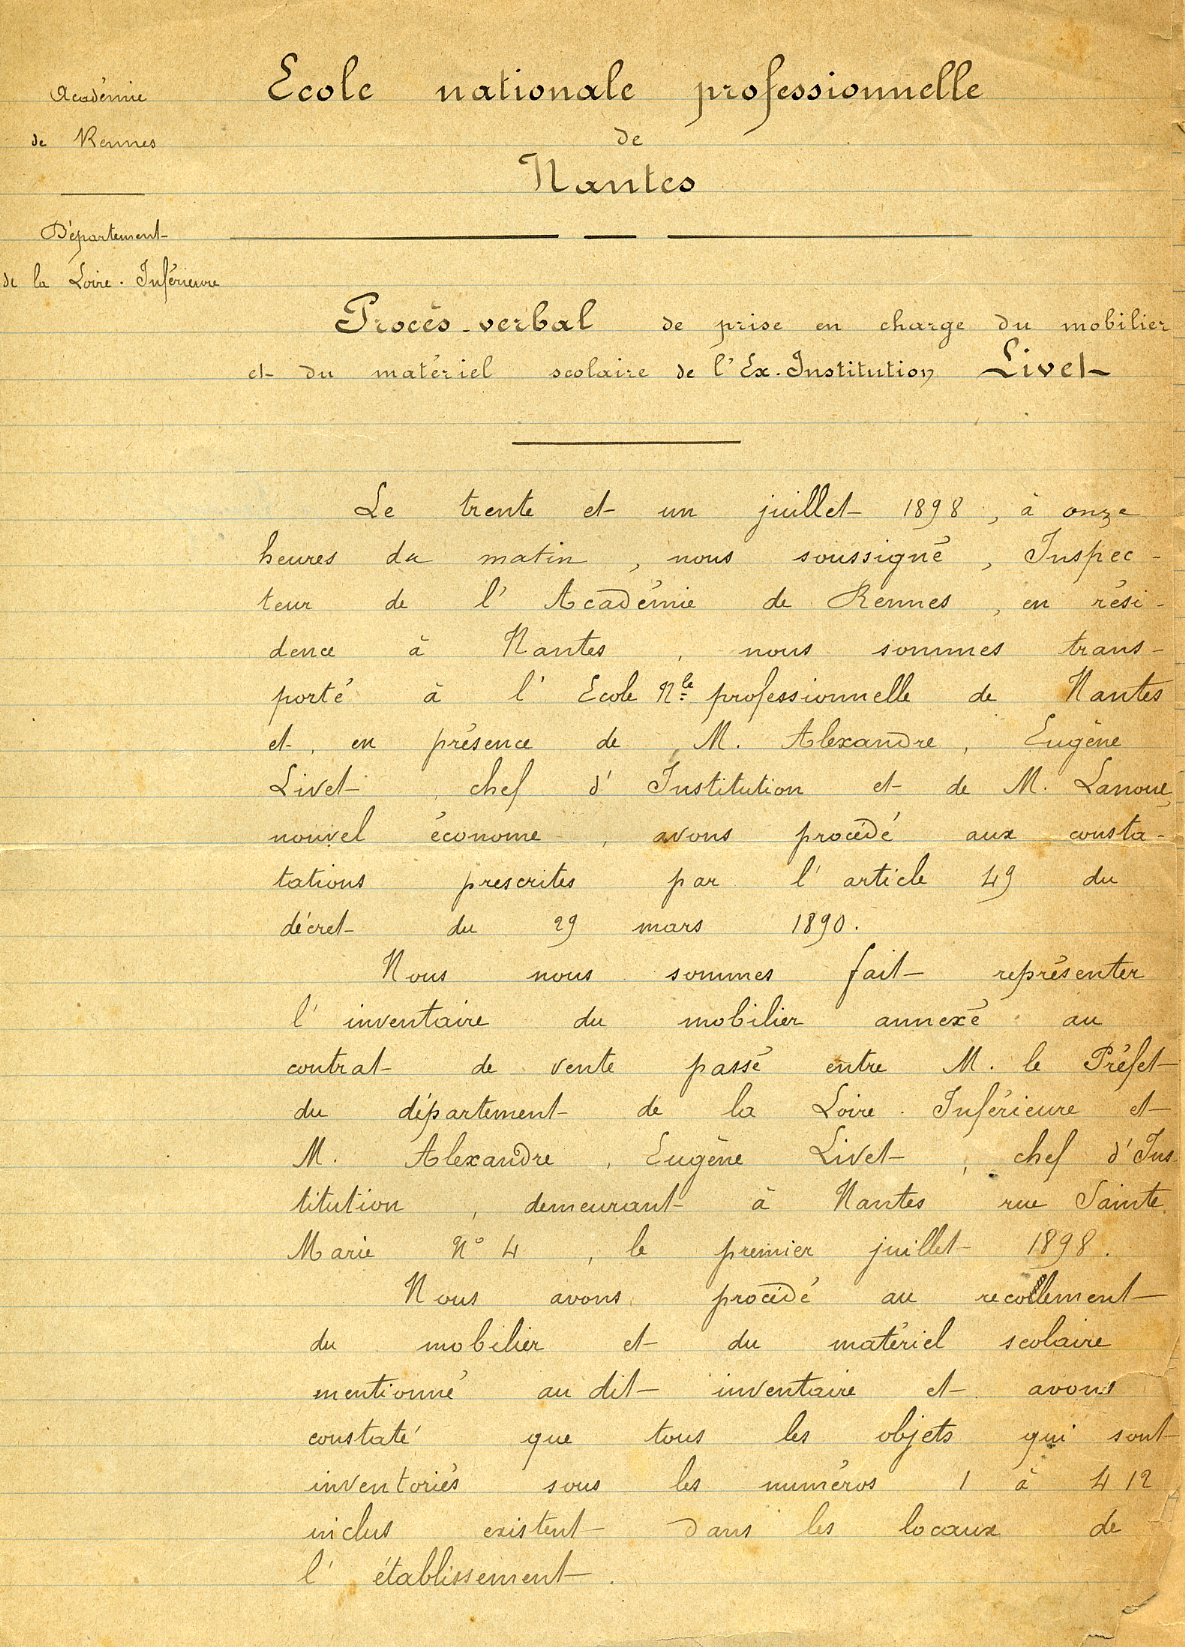 Académie
de Rennes
Département
de la Loire-Inférieure
Ecole nationale professionnelle
de
Nantes
Procès-verbal de prise en charge du mobilier
et du matériel scolaire de l'Ex-Institution Livet
Le trente et un juillet 1898, à onze
heures du matin, nous soussigné, Inspec-
teur de l'Académie de Rennes, en rési-
dence à Nantes, nous sommes trans-
porté à l'Ecole Nle professionnelle de Nantes
et, en présence de M. Alexandre, Eugène
Livet chef d'Institution et de M. Lanoue,
nouvel économe, avons procédé aux consta-
tations prescrites par l'article 49 du
décret du 29 mars 1890.
Nous nous sommes fait représenter
l'inventaire du mobilier annexé au
contrat de vente passé entre M. le Préfet
du département de la Loire-Inférieure et
M. Alexandre, Eugène Livet, chef d'Ins
titution, demeurant à Nantes rue Sainte
Marie N° 4, le premier juillet 1898.
Nous avons procédé au recollement
du mobilier et du matériel scolaire
mentionné au dit inventaire et avons
constaté que tous les objets qui sont
inventoriés sous les numéros 1 à 412
inclus existent dans les locaux de
l'établissement.